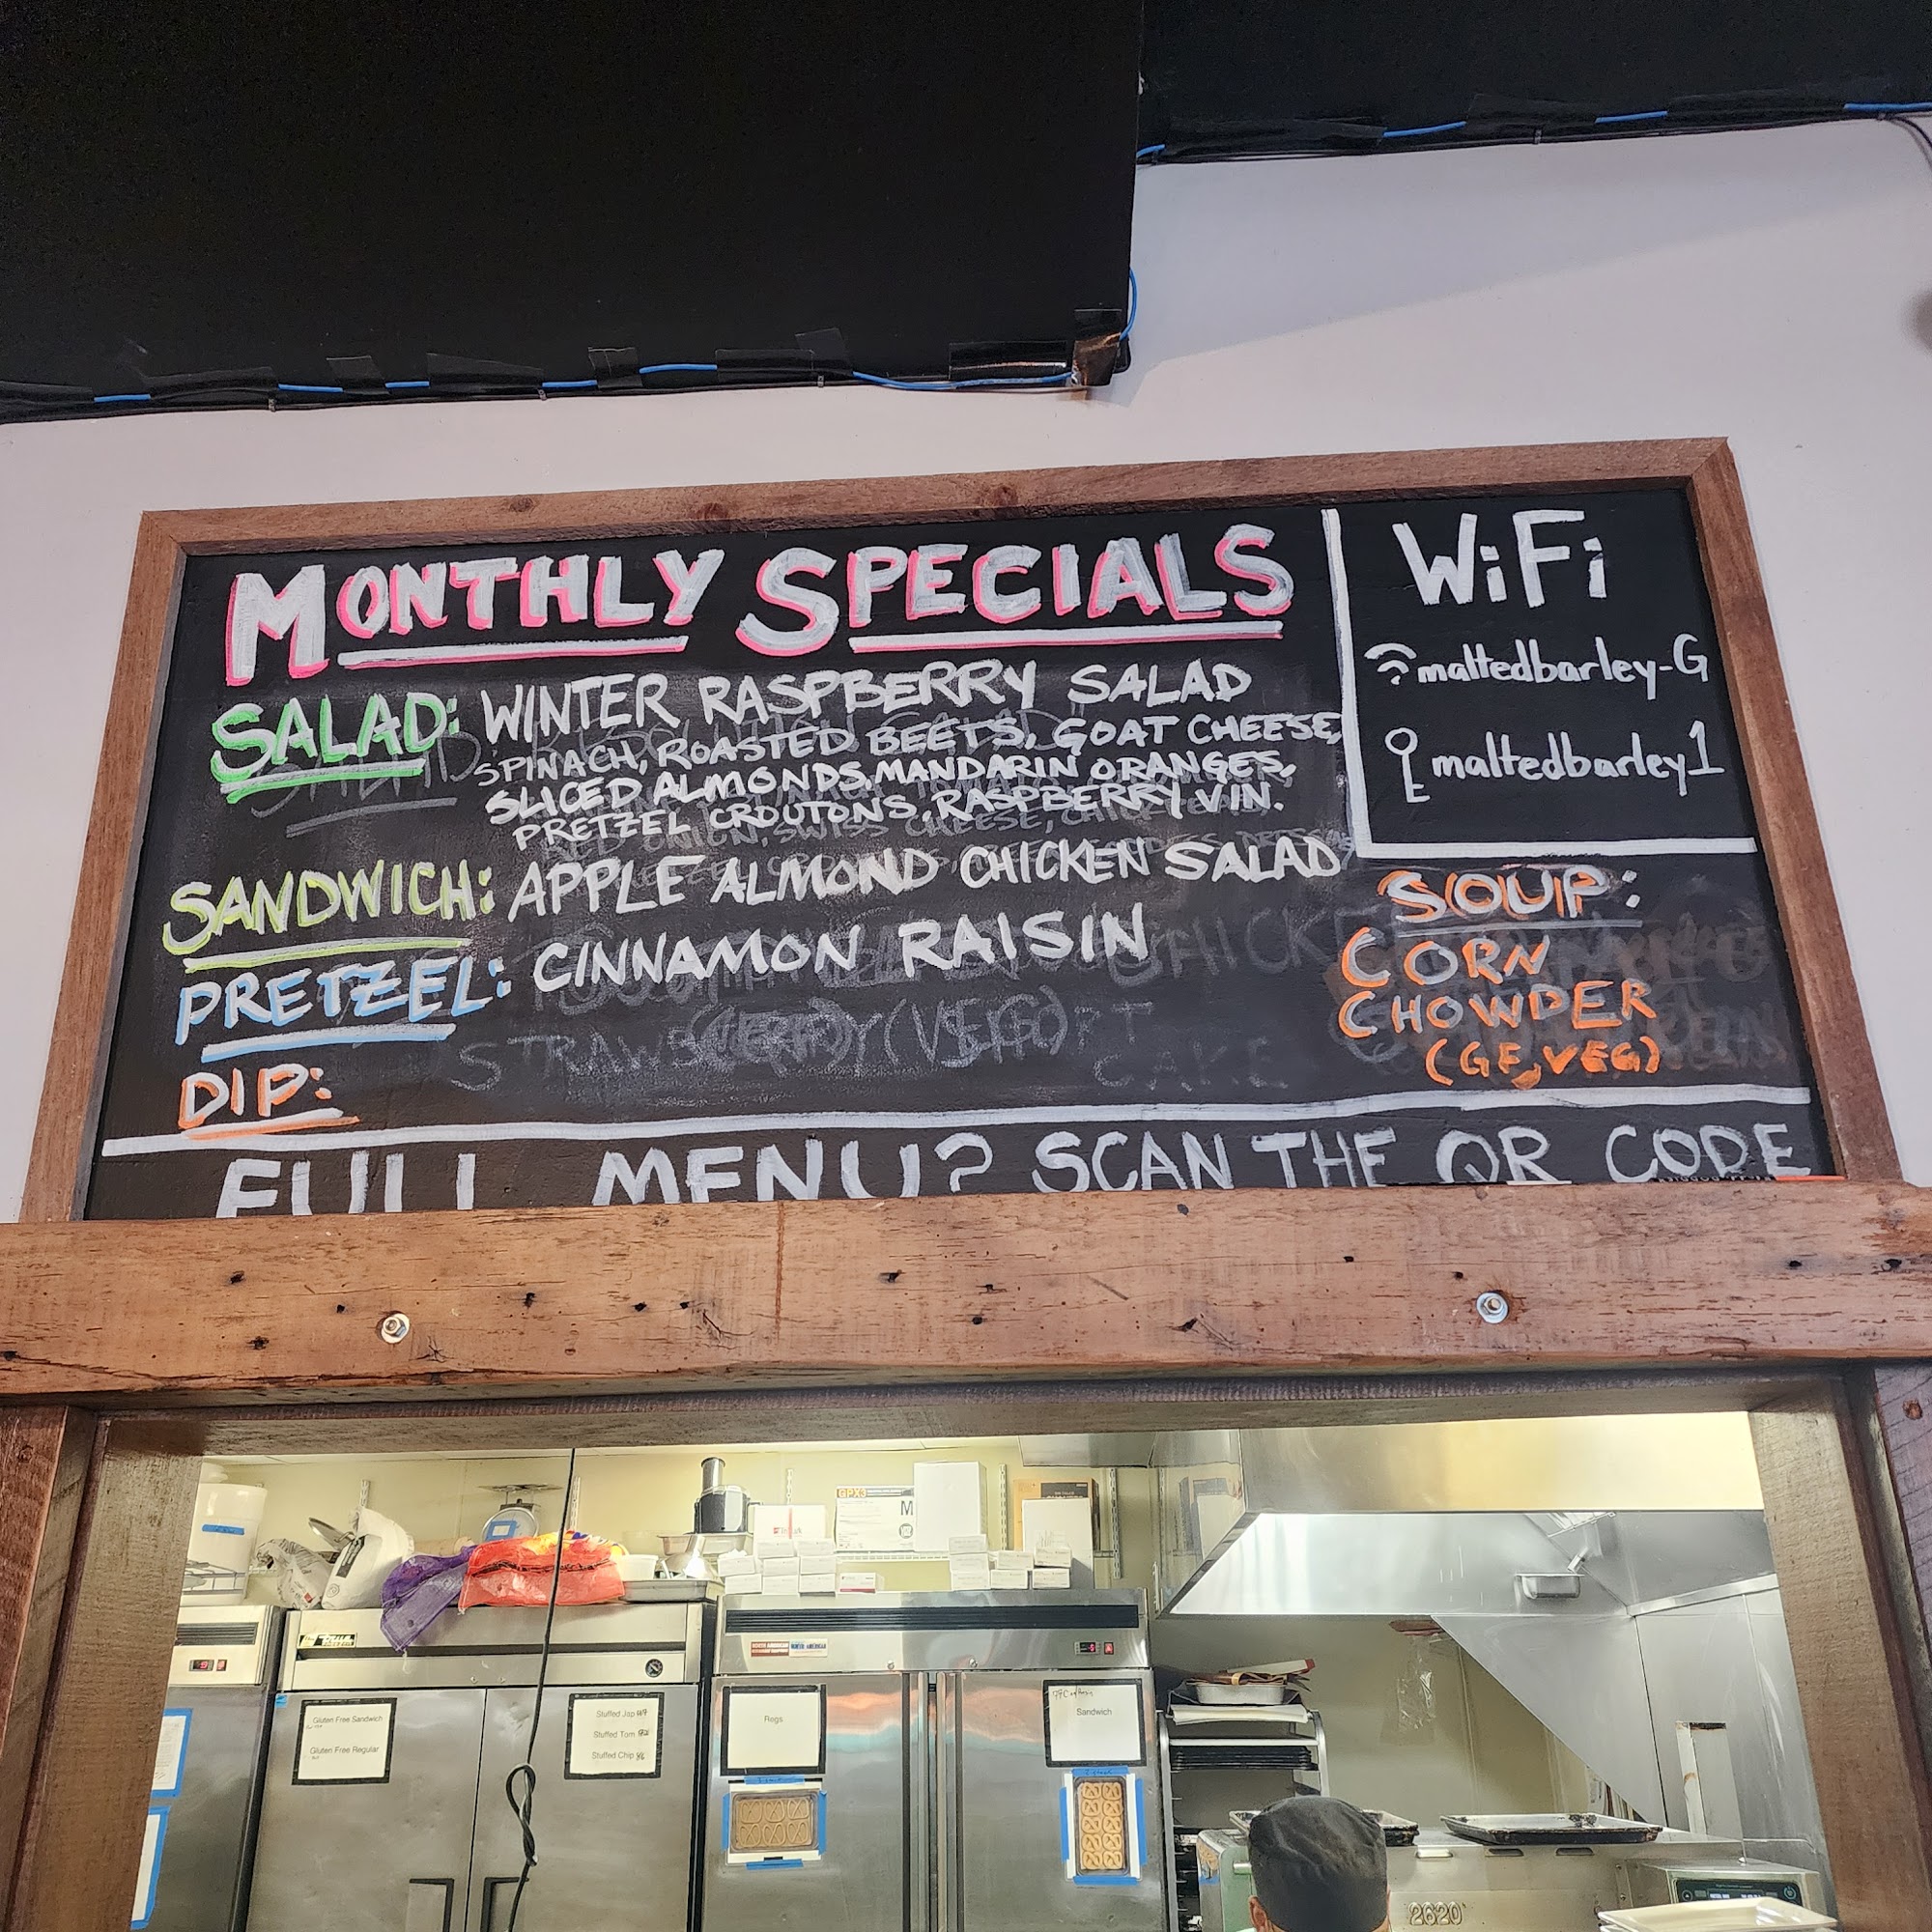 MONTHLY SPECIALS
SALAD: WINTER RASPBERRY SALAD
SPINACH, ROASTED BEETS, GOAT CHEESE,
SLICED ALMONDS, MANDARIN ORANGES,
PRETZEL CROUTONS, RASPBERRY VIN.
SANDWICH: APPLE ALMOND CHICKEN SALAD
PRETZEL: CINNAMON RAISIN
DIP:
WiFi
maltedbarley-G
maltedbarley1
SOUP:
CORN
CHOWDER
(GF, VEG)
FULL MENU? SCAN THE QR CODE
GPX3
M
Gluten Free Sandwich
Gluten Free Regular
Stuffed Jap
Stuffed Tom
Stuffed Chip
Regs
Sandwich
2620